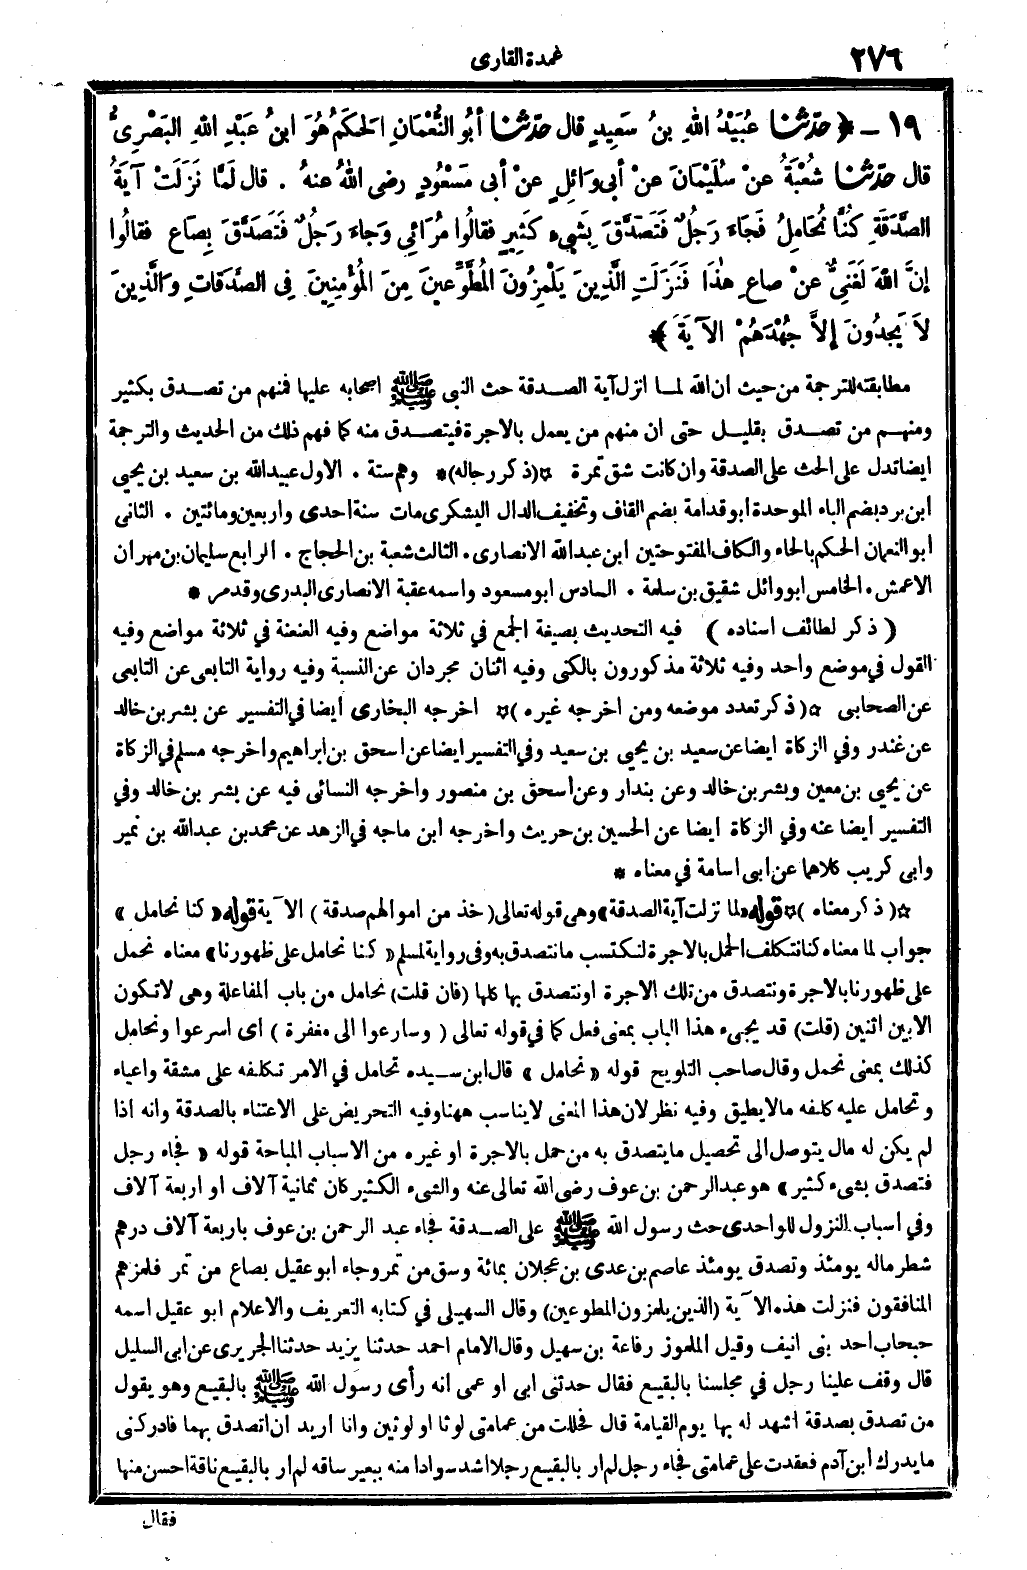 ٢٧٦
عمدة القارى
١٩ - ﴿ حَدَّثَنَا عُبَيْدُ اللهِ بنُ سَعِيدٍ قال حَدَّثَنَا أبُو النُّعْمَانِ الحَكَمُ هُوَ ابنُ عَبْدِ اللهِ البَصْرِىُّ
قال حَدَّثَنَا شُعْبَةُ عنْ سُلَيْمَانَ عنْ أبي وَائِلٍ عنْ أبى مَسْعُودٍ رضى اللهُ عنهُ . قال لَمَّا نَزَلَتْ آيَةُ
الصَّدَقَةِ كُنَّا نُحَامِلُ فَجَاءَ رَجُلٌ فَتَصَدَّقَ بِشَىْءٍ كَثِيرٍ فقالُوا مُرَائِي وَجاءَ رَجُلٌ فَتَصَدَّقَ بِصَاعٍ فقالُوا
إنَّ اللهَ لَغَنِىٌّ عنْ صاعِ هٰذَا فَنَزَلَتِ الَّذِينَ يَلْمِزُونَ المُطَّوِّعِينَ مِنَ المُؤْمِنِينَ فِى الصَّدَقاتِ وَالَّذِينَ
لاَ يَجِدُونَ إلاَّ جُهْدَهُمْ الآيَةَ ﴾
مطابقته للترجمة من حيث ان الله لمـا انزل آية الصـدقة حث النبي ﷺ اصحابه عليها فمنهم من تصـدق بكثير
ومنهـم من تصـدق بقليـل حتى ان منهم من يعمل بالاجرة فيتصـدق منه كما فهم ذلك من الحديث والترجمة
ايضا تدل على الحث على الصدقة وان كانت شق تمرة ☆(ذكر رجاله)* وهم ستة . الاول عبيدالله بن سعيد بن يحيى
ابن برد بضم الباء الموحدة ابو قدامة بضم القاف وتخفيف الدال اليشكرى مات سنة احدى واربعين ومائتين . الثانى
ابو النعمان الحكم بالحاء والكاف المفتوحتين ابن عبدالله الانصارى . الثالث شعبة بن الحجاج . الرابع سليمان بن مهران
الاعمش . الخامس ابو وائل شقيق بن سلمة . السادس ابو مسعود واسمه عقبة الانصارى البدرى وقد مر *
( ذكر لطائف اسناده ) فيه التحديث بصيغة الجمع في ثلاثة مواضع وفيه العنعنة في ثلاثة مواضع وفيه
القول في موضع واحد وفيه ثلاثة مذكورون بالكنى وفيه اثنان مجردان عن النسبة وفيه رواية التابعى عن التابعى
عن الصحابى ☆(ذكر تعدد موضعه ومن اخرجه غيره)☆ اخرجه البخارى أيضا في التفسير عن بشر بن خالد
عن غندر وفي الزكاة ايضا عن سعيد بن يحيى بن سعيد وفي التفسير ايضا عن اسحق بن ابراهيم واخرجه مسلم في الزكاة
عن يحيى بن معين وبشر بن خالد وعن بندار وعن أسحق بن منصور واخرجه النسائى فيه عن بشر بن خالد وفي
التفسير ايضا عنه وفي الزكاة ايضا عن الحسين بن حريث واخرجه ابن ماجه في الزهد عن محمد بن عبدالله بن نمير
وابى كريب كلاهما عن ابى اسامة في معناه *
☆( ذكر معناه )☆ قوله «لما نزلت آية الصدقة» وهى قوله تعالى (خذ من اموالهم صدقة ) الآية قوله « كنا نحامل »
جواب لما معناه كنا نتكلف الحمل بالاجرة لنكتسب ما نتصدق به وفى رواية لمسلم « كنا نحامل على ظهورنا» معناه نحمل
على ظهورنا بالاجرة ونتصدق من تلك الاجرة او نتصدق بها كلها (فان قلت) نحامل من باب المفاعلة وهى لا تكون
الا بين اثنين (قلت) قد يجىء هذا الباب بمعنى فعل كما في قوله تعالى ( وسارعوا الى مغفرة ) اى اسرعوا ونحامل
كذلك بمعنى نحمل وقال صاحب التلويح قوله « نحامل » قال ابن سـيده تحامل في الامر تكلفه على مشقة واعياء
وتحامل عليه كلفه مالا يطيق وفيه نظر لان هذا المعنى لا يناسب ههنا وفيه التحريض على الاعتناء بالصدقة وانه اذا
لم يكن له مال يتوصل الى تحصيل ما يتصدق به من حمل بالاجرة او غيره من الاسباب المباحة قوله « فجاء رجل
فتصدق بشىء كثير » هو عبد الرحمن بن عوف رضى الله تعالى عنه والشىء الكثير كان ثمانية آلاف او اربعة آلاف
وفي اسباب النزول للواحدى حث رسول الله ﷺ على الصـدقة فجاء عبد الرحمن بن عوف باربعة آلاف درهم
شطر ماله يومئذ وتصدق يومئذ عاصم بن عدى بن عجلان بمائة وسق من تمر وجاء ابو عقيل بصاع من تمر فلمزهم
المنافقون فنزلت هذه الآية (الذين يلمزون المطوعين) وقال السهيلى في كتابه التعريف والاعلام ابو عقيل اسمه
حبحاب احد بنى انيف وقيل الملموز رفاعة بن سهيل وقال الامام احمد حدثنا يزيد حدثنا الجريرى عن ابى السليل
قال وقف علينا رجل في مجلسنا بالبقيع فقال حدثنى ابى او عمى انه رأى رسول الله ﷺ بالبقيع وهو يقول
من تصدق بصدقة اشهد له بها يوم القيامة قال فحللت من عمامتى لوثا او لوثين وانا اريد ان اتصدق بهما فادركنى
ما يدرك ابن آدم فعقدت على عمامتى فجاء رجل لم ار بالبقيع رجلا اشد سوادا منه ببعير ساقه لم ار بالبقيع ناقة احسن منها
فقال